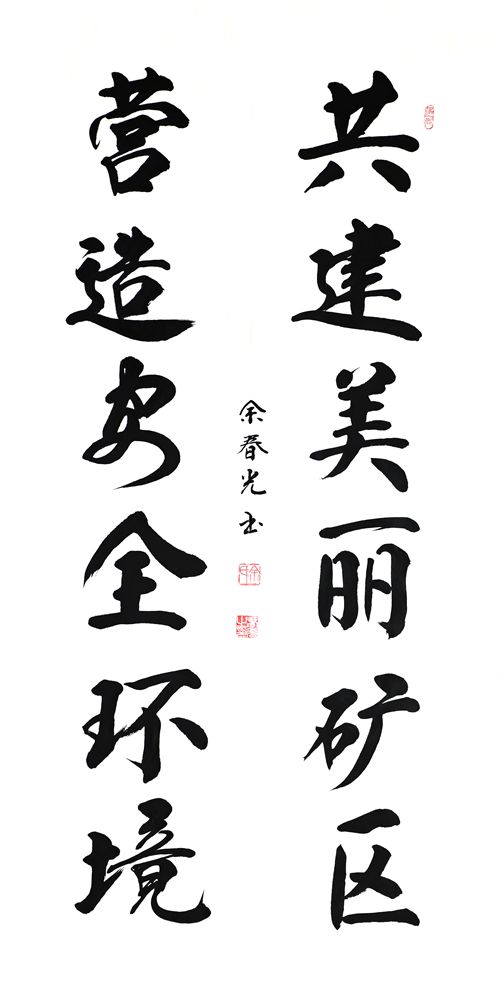 共建美丽矿区
营造安全环境
余春光书